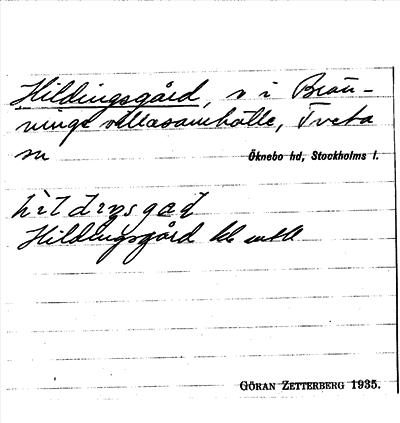 Hildingsgård, v i Brän-
ninge villasamhälle, Tveta
sn Öknebo hd, Stockholms l.
Hildingsgård
GÖRAN ZETTERBERG 1935.